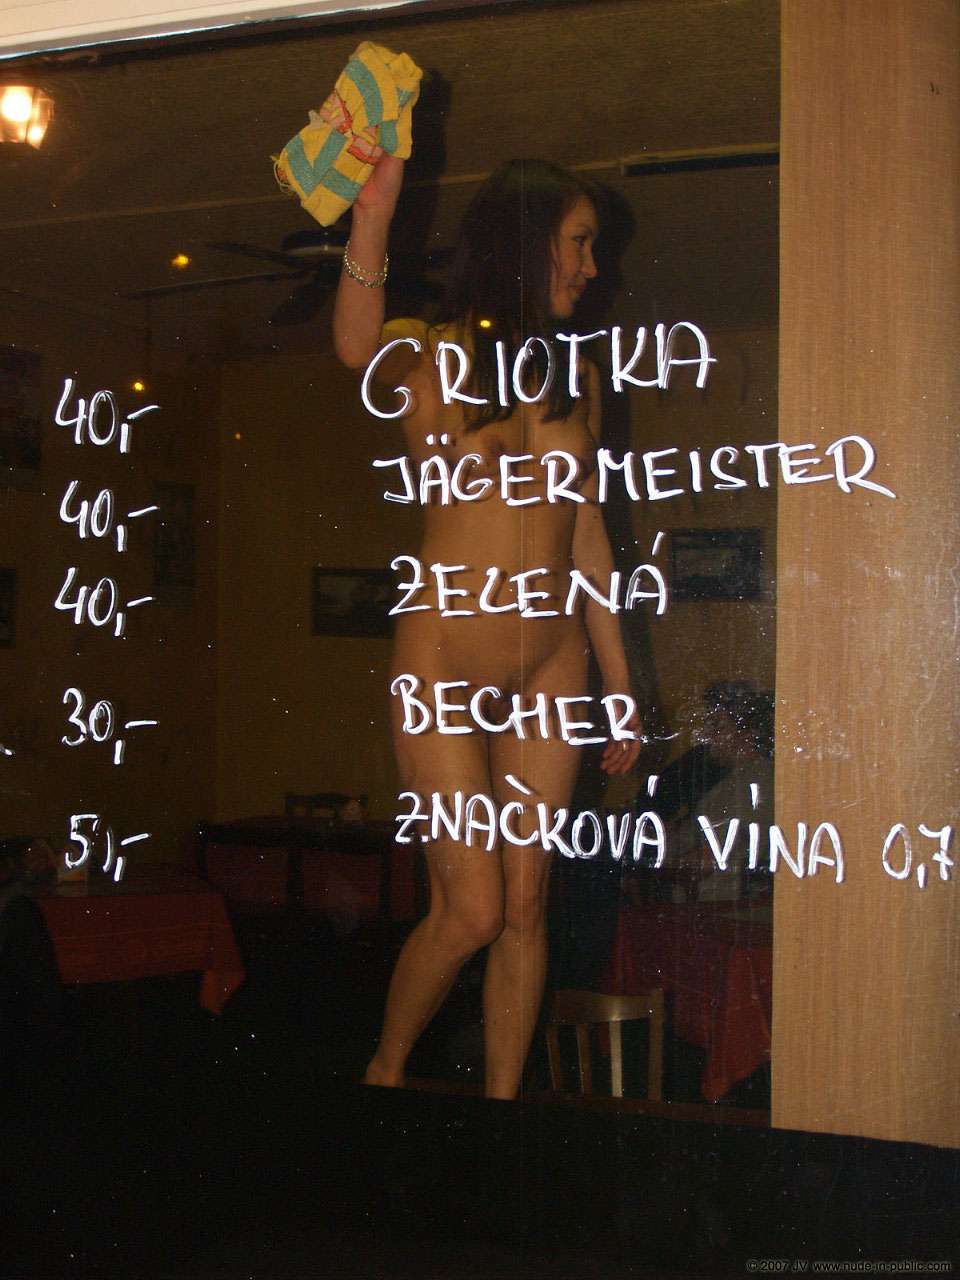 40,- GRIOTKA
40,- JÄGERMEISTER
40,- ZELENÁ
30,- BECHER
51,- ZNAČKOVÁ VÍNA 0,7
© 2007 JV www.nude-in-public.com